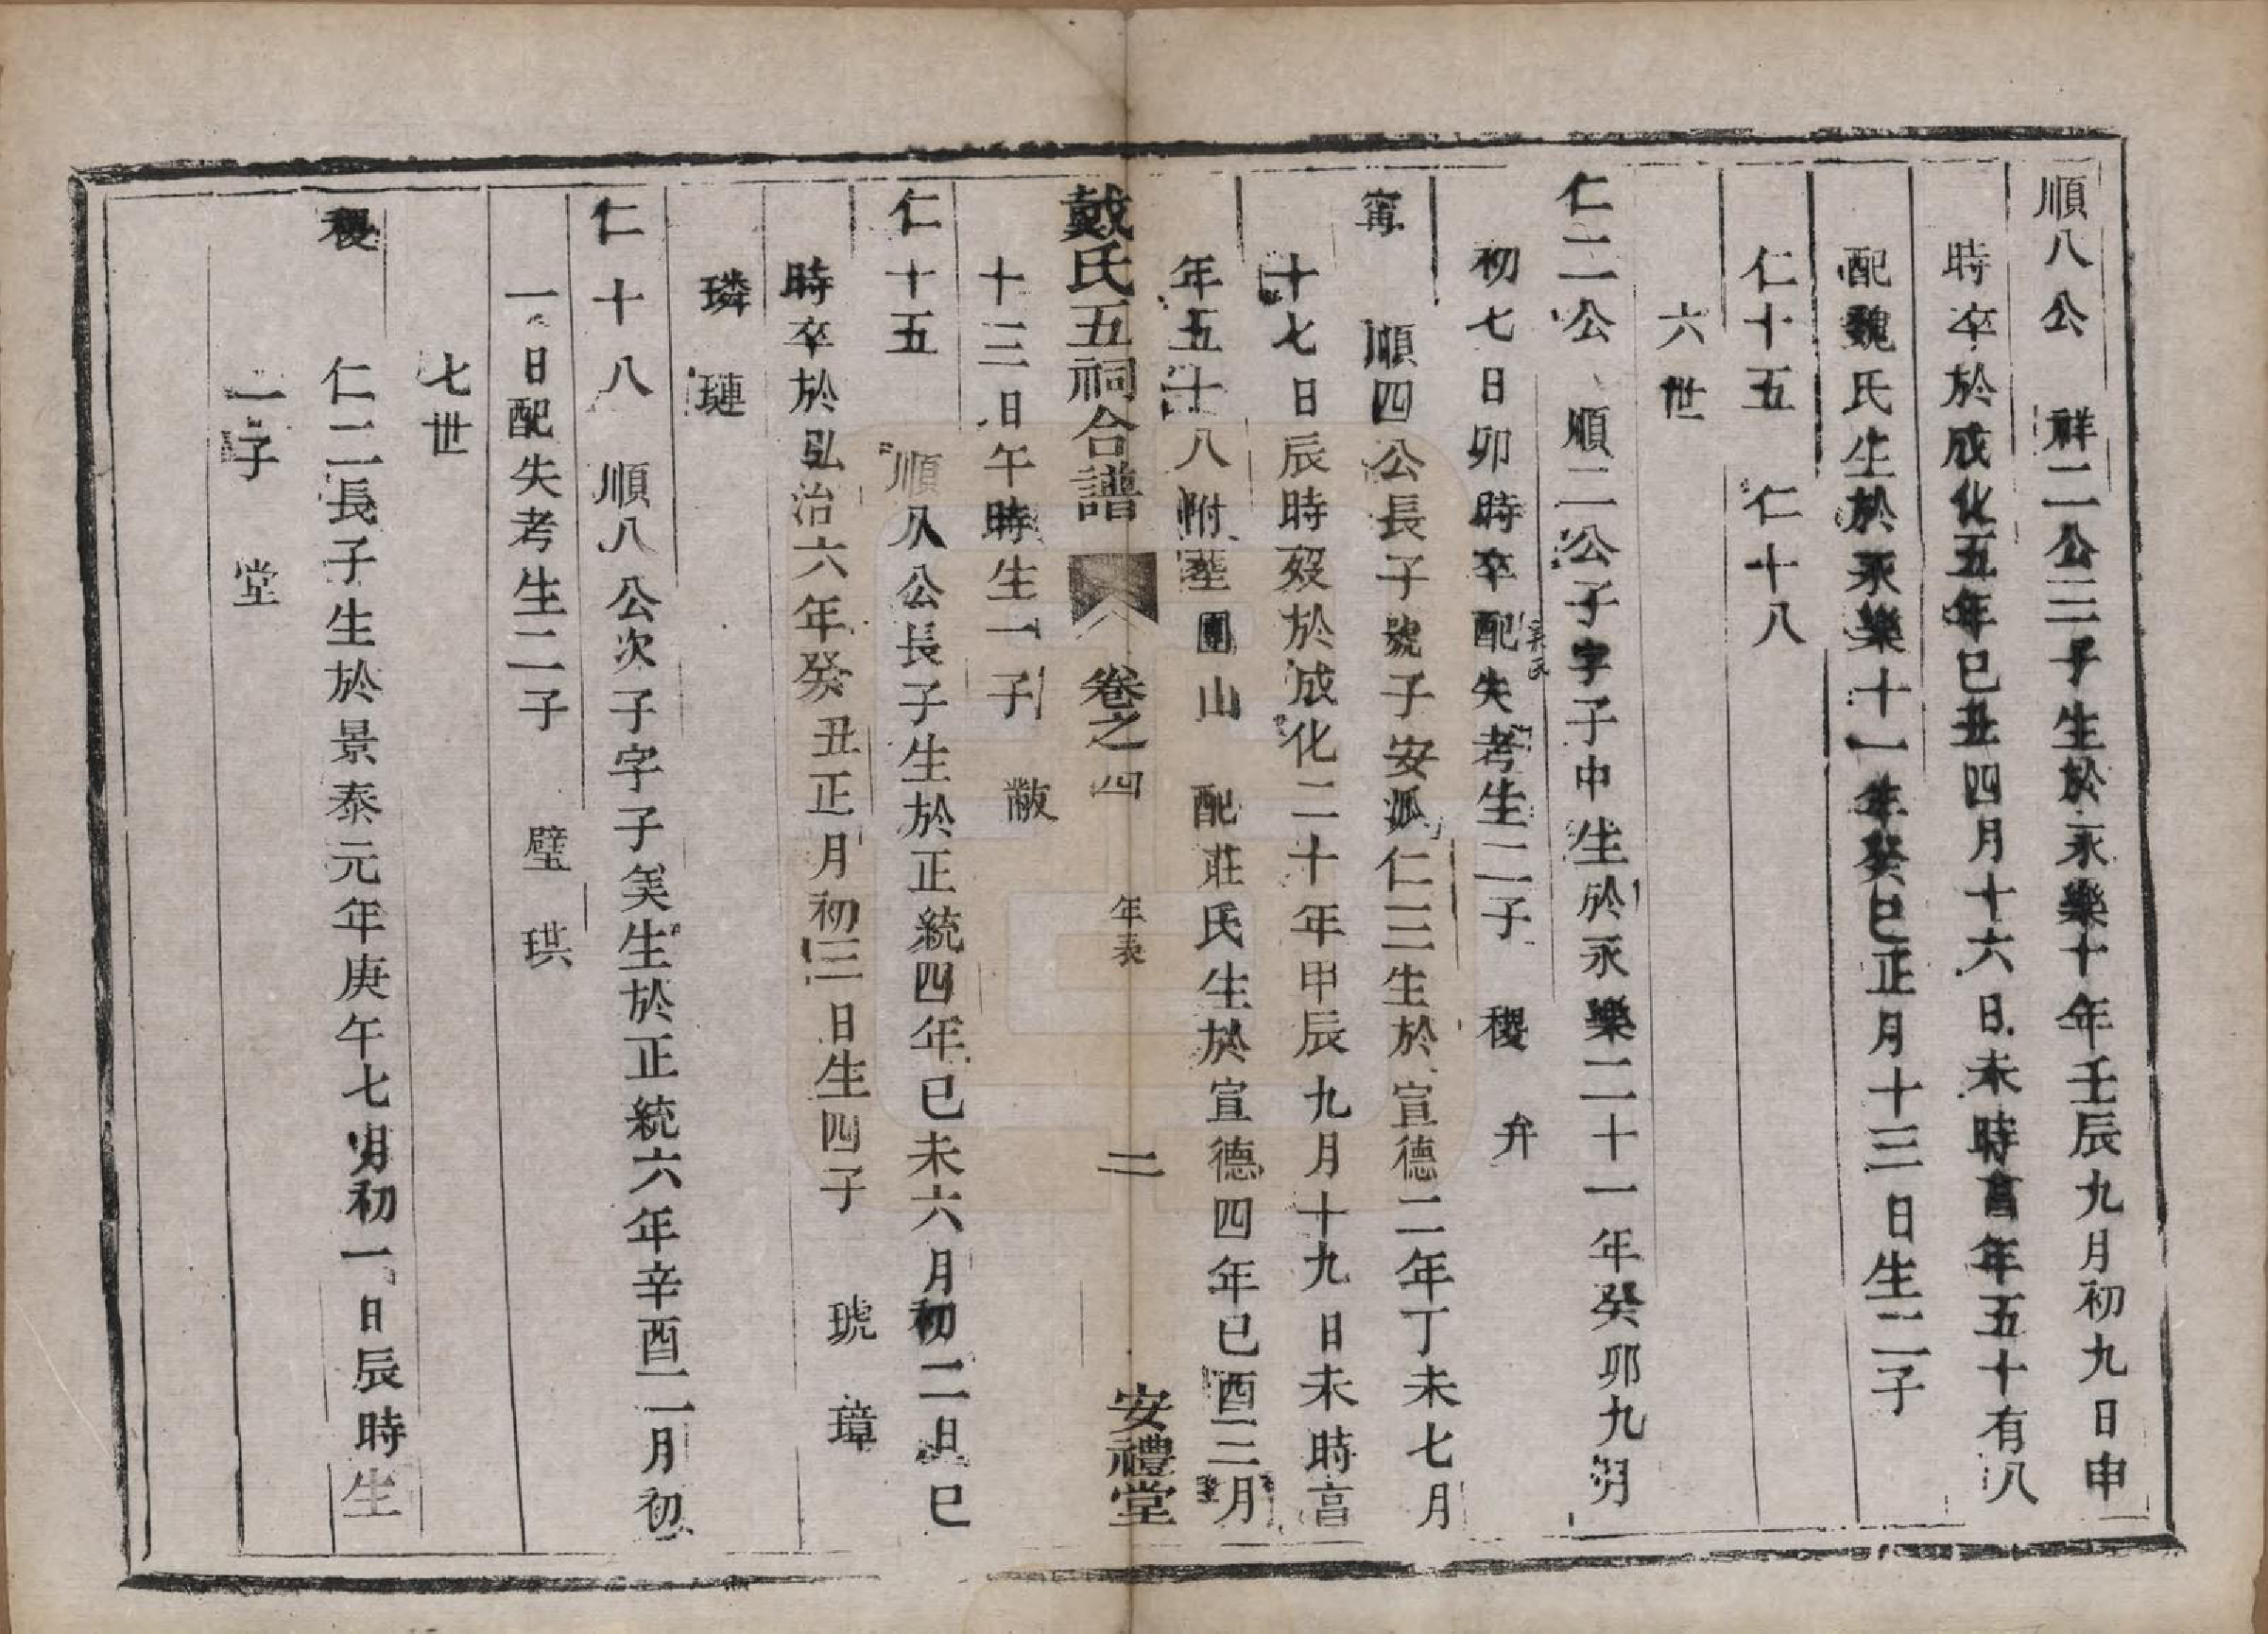 順八公　祥二公三子生於永樂十年壬辰九月初九日申
時卒於成化五年巳丑四月十六日未時亯年五十有八
配魏氏生於永樂十一年癸巳正月十三日生二子
仁十五　仁十八
六世
仁二公　順二公子字子中生於永樂二十一年癸卯九月
初七日卯時卒配失考生二子　稷　弁
甯　順四公長子號子安派仁三生於宣德二年丁未七月
十七日辰時歿於成化二十年甲辰九月十九日未時亯
年五十八附塟團山　配莊氏生於宣德四年巳酉三月
戴氏五祠合譜　卷之四　年表　二　安禮堂
十三日午時生一子　黻
仁十五　順八公長子生於正統四年巳未六月初二日巳
時卒於弘治六年癸丑正月初三日生四子　琥　璋
璘　璉
仁十八　順八公次子字子美生於正統六年辛酉二月初
一日配失考生二子　璧　珙
七世
稷　仁二長子生於景泰元年庚午七月初一日辰時生
一子　堂